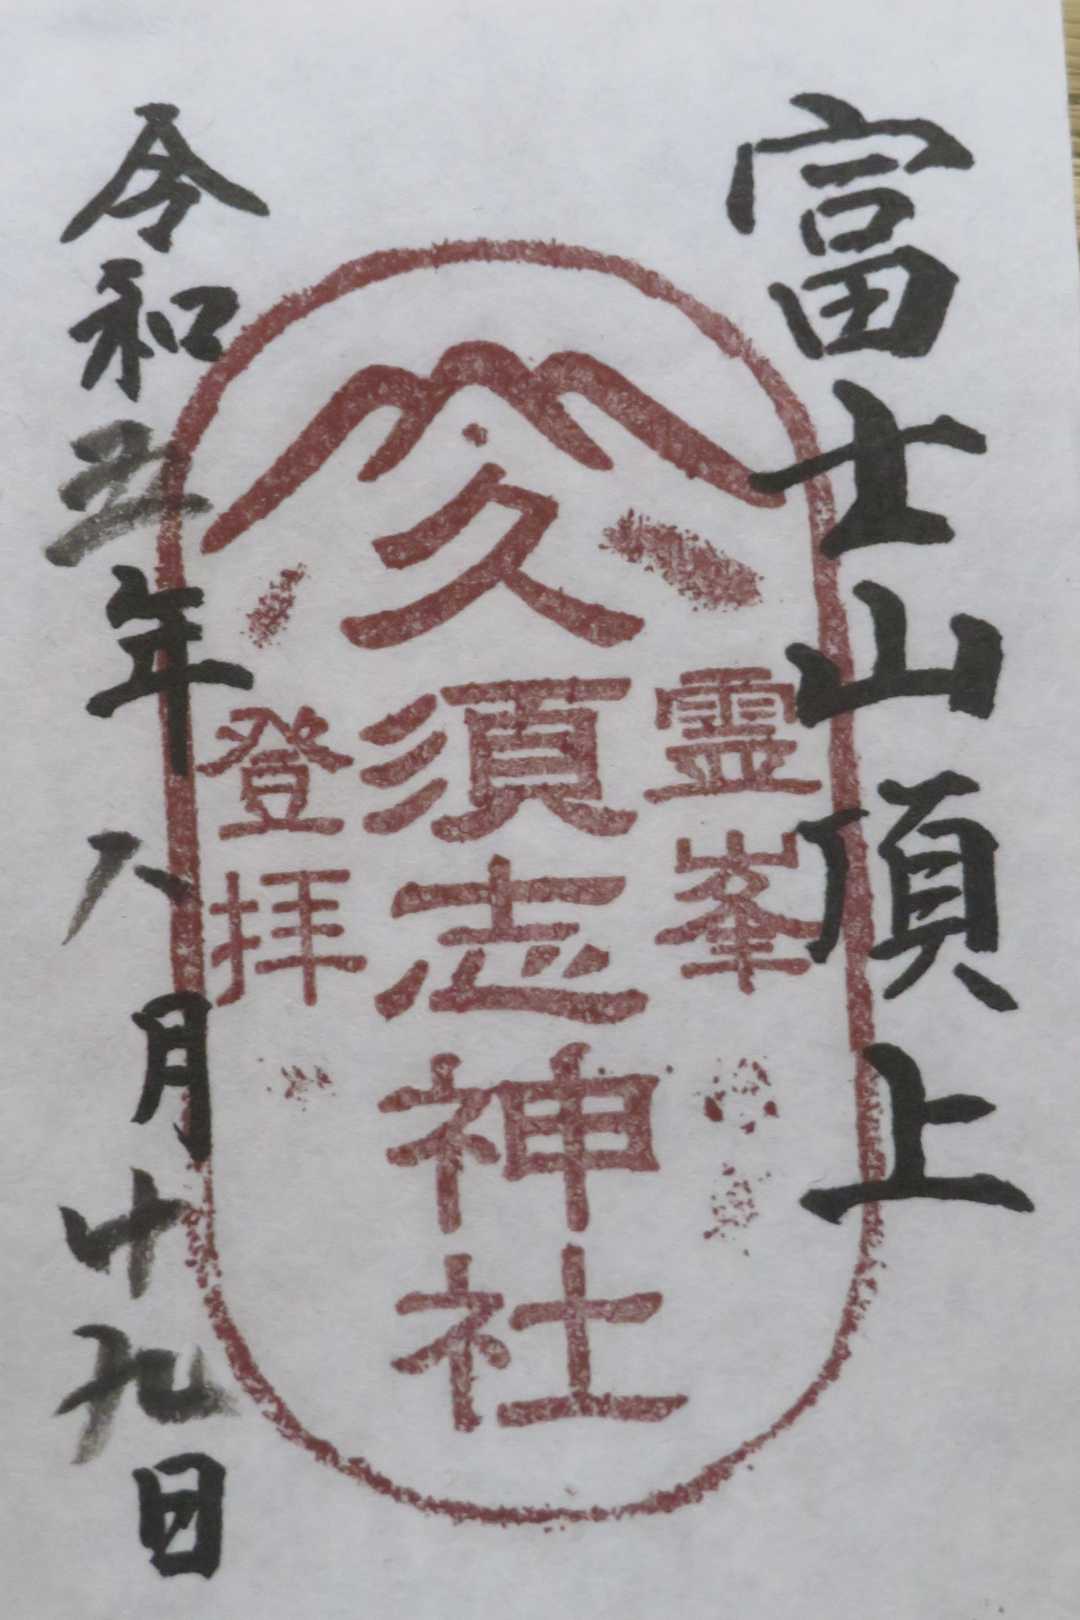 富士山頂上
霊峯
久須志神社
登拝
令和五年八月十九日